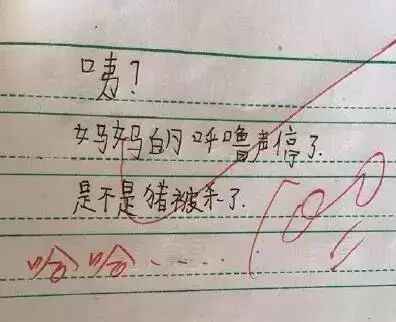 咦？
妈妈的呼噜声停了.
是不是猪被杀了.
哈哈......